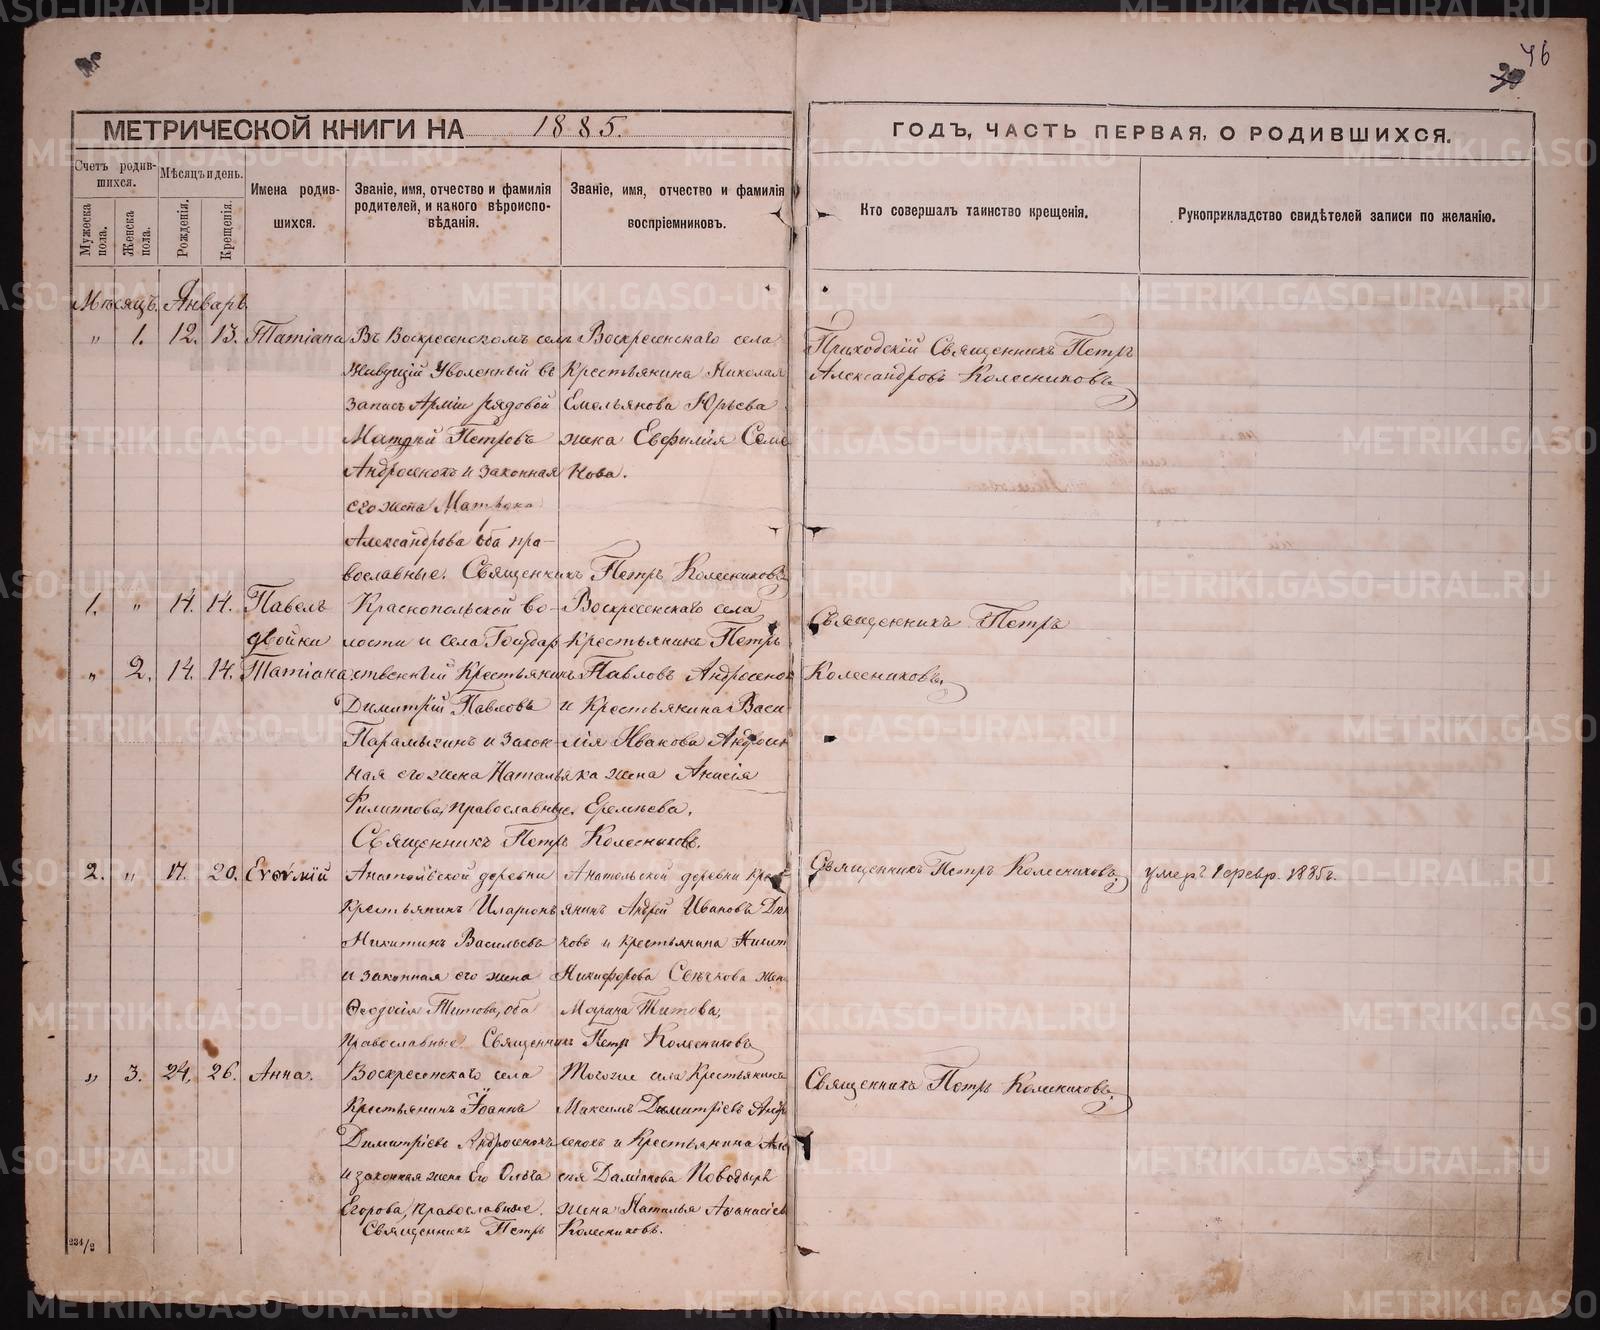 46
МЕТРИЧЕСКОЙ КНИГИ НА 1885.
ГОДЪ, ЧАСТЬ ПЕРВАЯ, О РОДИВШИХСЯ.
Счетъ родившихся.
Мужеска пола.
Женска пола.
Мѣсяцъ и день.
Рожденія.
Крещенія.
Имена родившихся.
Званіе, имя, отчество и фамилія родителей, и какого вѣроисповѣданія.
Званіе, имя, отчество и фамилія воспріемниковъ.
Кто совершалъ таинство крещенія.
Рукоприкладство свидѣтелей записи по желанію.
Мѣсяцъ Январь
" 1. 12. 13. Татіана
Въ Воскресенскомъ селѣ
живущій Уволенный въ
запасъ Арміи рядовой
Матѳей Петровъ
Андросенокъ и законная
его жена Матрона
Александрова оба пра-
вославные. Священникъ Петръ Колесниковъ
Воскресенскаго села
Крестьянина Николая
Емельянова Юрьева
жена Евфимія Семе
нова.
Приходскій Священникъ Петръ
Александровъ Колесниковъ
1. " 14. 14. Павелъ
двойни
" 2. 14. 14. Татіана
Краснопольской во-
лости и села Государ
ственный Крестьянинъ
Димитрій Павловъ
Парамыгинъ и закон-
ная его жена Наталья
Филиппова, православные.
Священникъ Петръ Колесниковъ.
Воскресенскаго села
Крестьянинъ Петръ
Павловъ Андросенок
и Крестьянина Васи
лія Иванова Андросен
ка жена Анисія
Еремѣева.
Священникъ Петръ
Колесниковъ
2. " 17. 20. Евѳимій
Анатольской деревни
Крестьянинъ Иларіонъ
Никитинъ Васильевъ
и законная его жена
Ѳеодосія Титова, оба
православные. Священникъ Петръ Колесниковъ
Анатольской деревни Крест
янинъ Андрей Ивановъ
ковъ и крестьянина Никит
Никифорова жен
Марина Титова.
Священникъ Петръ Колесниковъ.
умеръ 1 февр. 1885г.
" 3. 24. 26. Анна.
Воскресенскаго села
Крестьянинъ Іоаннъ
Димитріевъ Андросенокъ
и законная жена Его Ольга
Егорова, православные.
Священникъ Петръ Колесниковъ.
Тогоже села Крестьянинъ
Максимъ Димитріевъ Андро
сенокъ и Крестьянина
жена Наталья Аѳанасіев
Священникъ Петръ Колесниковъ.
234/2
METRIKI.GASO-URAL.RU